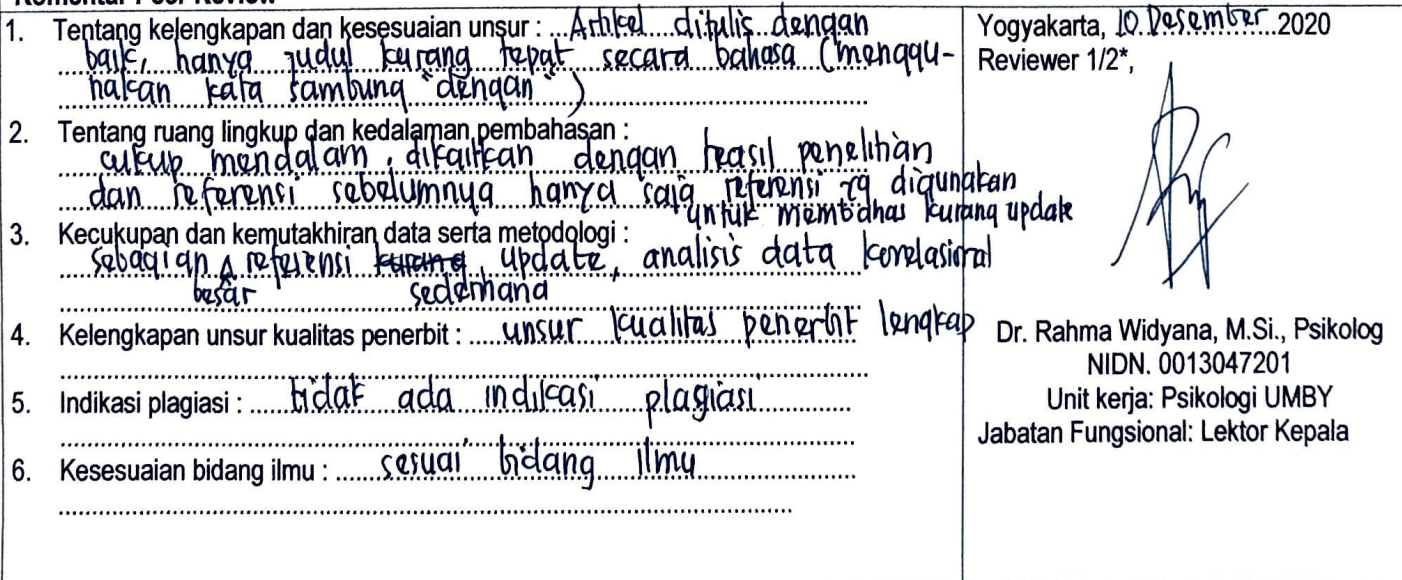 1. Tentang kelengkapan dan kesesuaian unsur : Artikel ditulis dengan
baik, hanya judul kurang tepat secara bahasa (menggu-
nakan kata sambung "dengan")
2. Tentang ruang lingkup dan kedalaman pembahasan :
cukup mendalam, dikaitkan dengan hasil penelitian
dan referensi sebelumnya hanya saja referensi yg digunakan
untuk membahas kurang update
3. Kecukupan dan kemutakhiran data serta metodologi :
Sebagian besar referensi kurang update, analisis data korelasional
sederhana
4. Kelengkapan unsur kualitas penerbit : unsur kualitas penerbit lengkap
5. Indikasi plagiasi : tidak ada indikasi plagiasi
6. Kesesuaian bidang ilmu : sesuai bidang ilmu
Yogyakarta, 10 Desember 2020
Reviewer 1/2*,
Dr. Rahma Widyana, M.Si., Psikolog
NIDN. 0013047201
Unit kerja: Psikologi UMBY
Jabatan Fungsional: Lektor Kepala